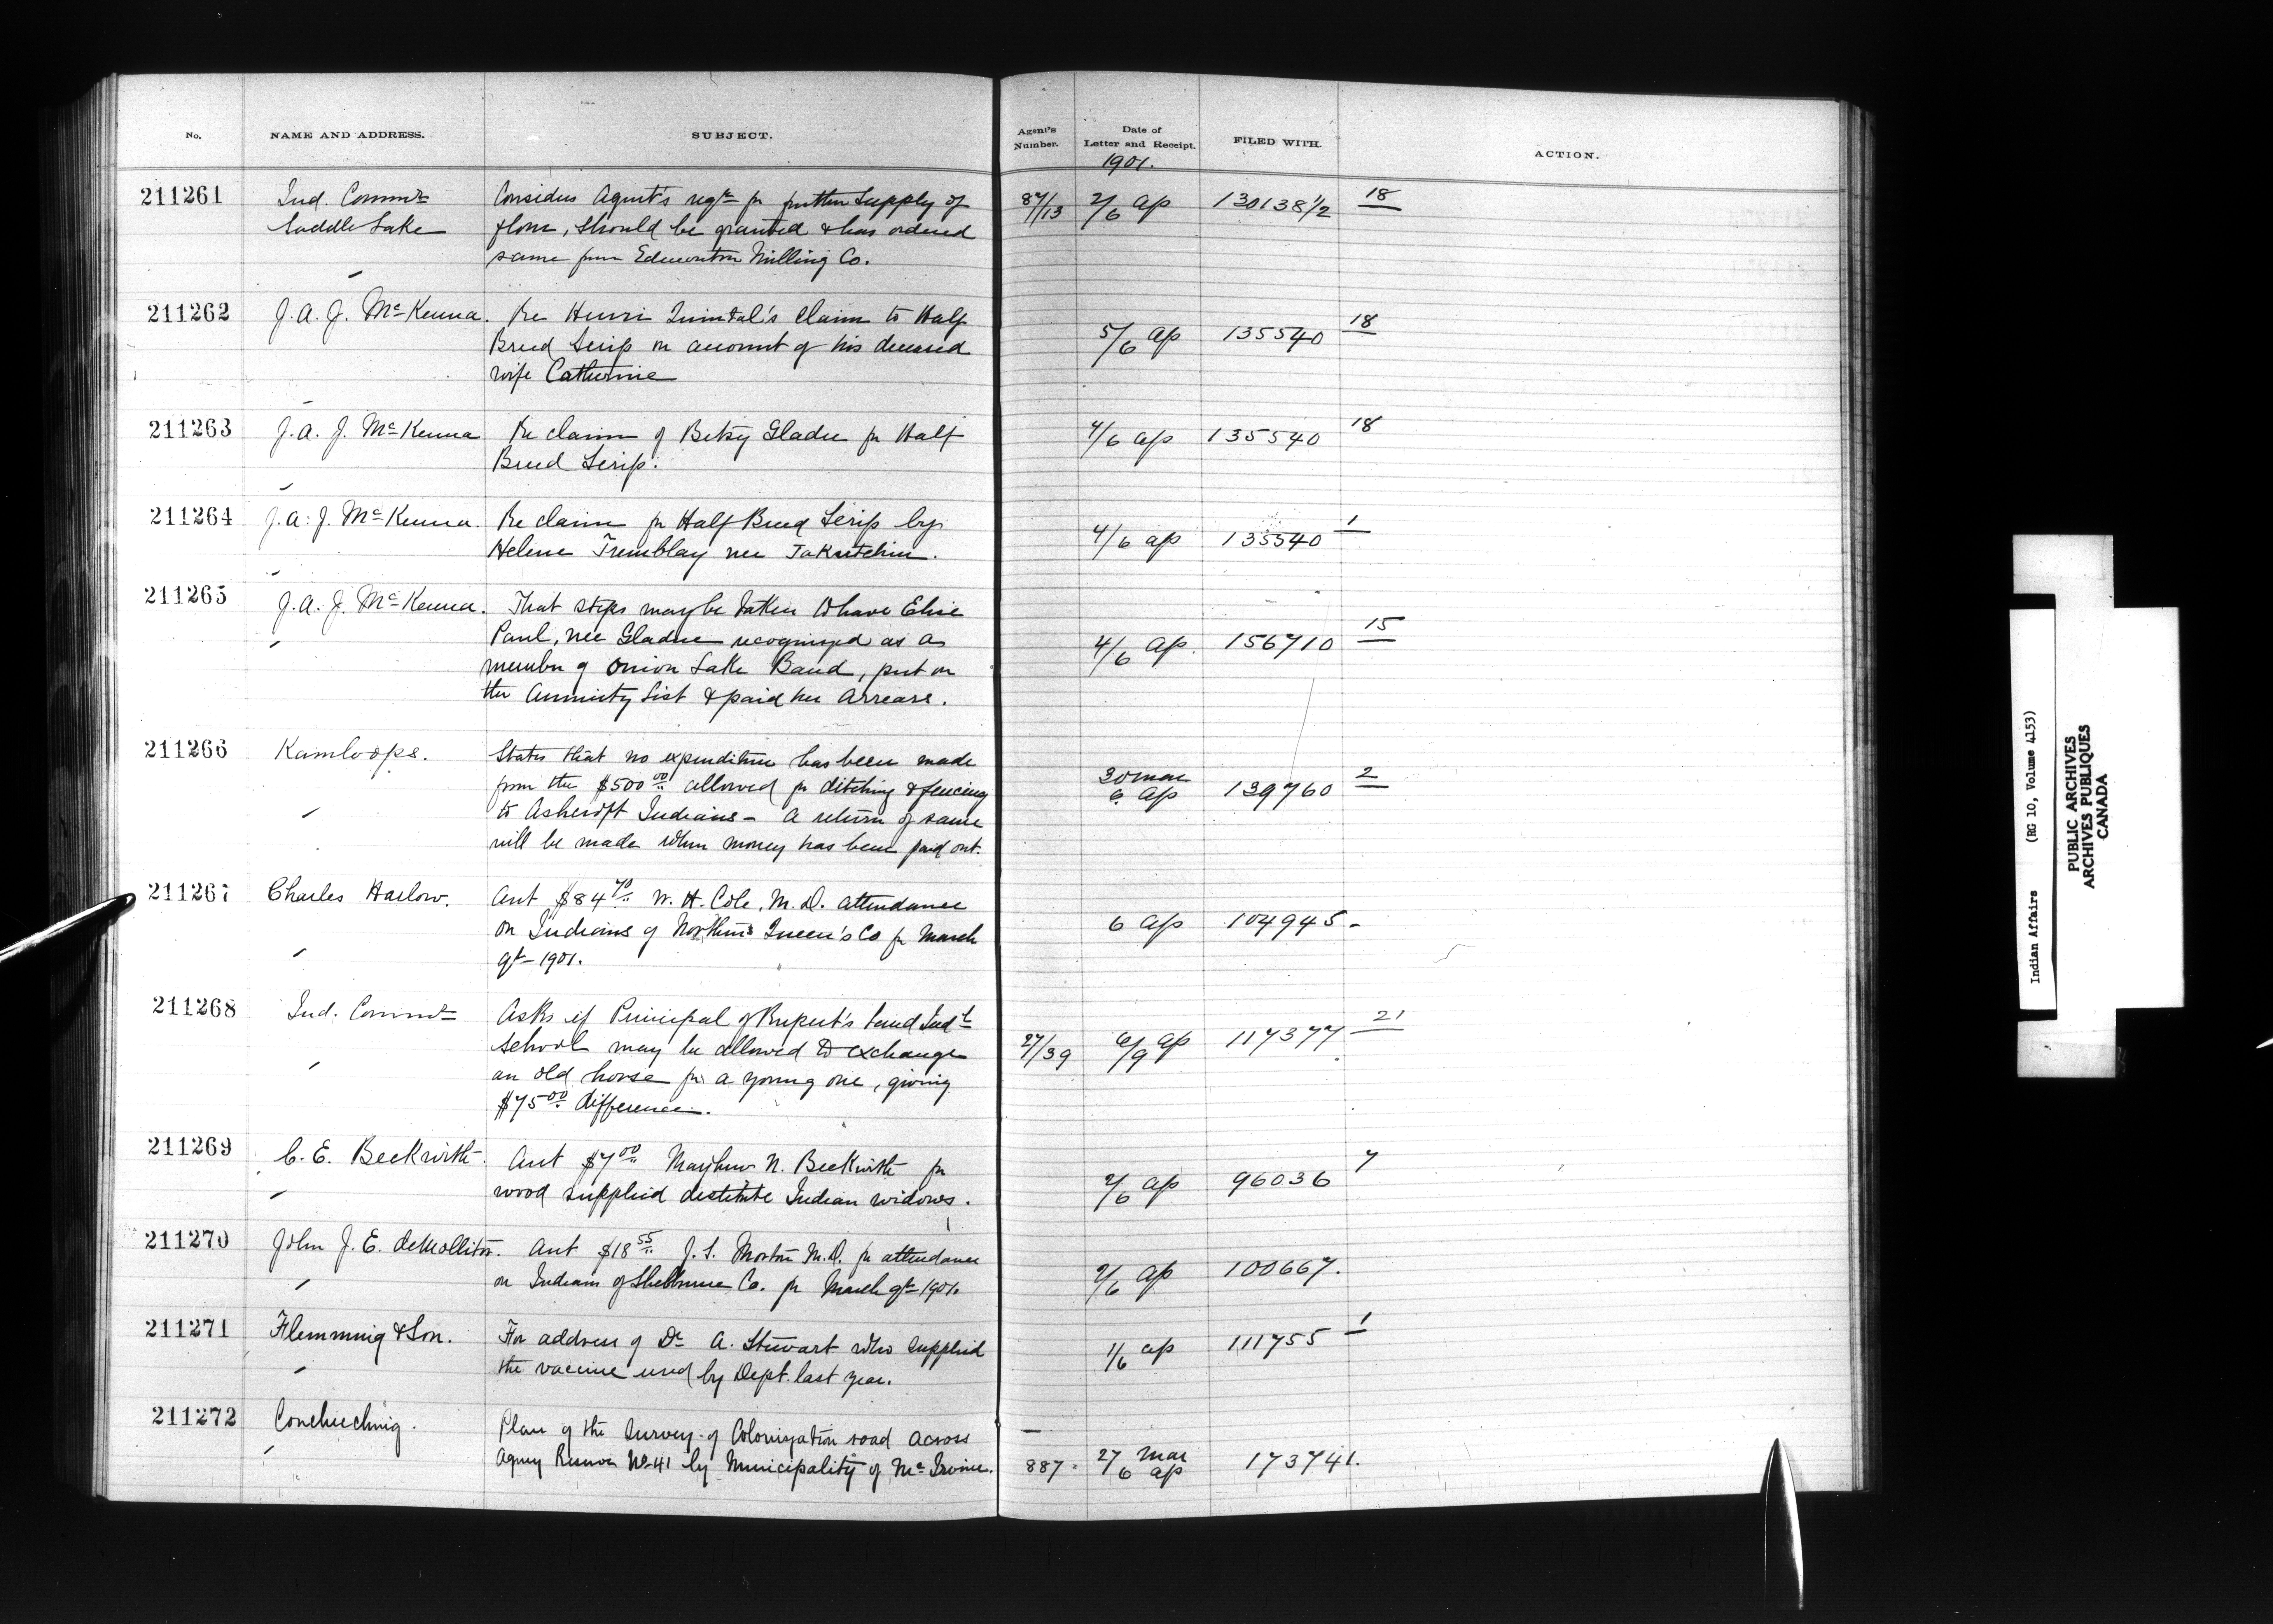 No. NAME AND ADDRESS. SUBJECT. Agent's Number. Date of Letter and Receipt. FILED WITH. ACTION.
1901.
211261 Ind. Commr Considers Agent's reqn for further supply of 2/6 ap 130138½ 18
Saddle Lake flour, should be granted & has ordered
same from Edmonton Milling Co.
211262 J. A. J. McKenna. Re Henri Quintal's claim to Half 5/6 ap 135540 18
Breed Scrip on account of his deceased
wife Catherine
211263 J. A. J. McKenna Re claim of Betsy Gladu for Half 4/6 ap 135540 18
Breed Scrip.
211264 J. A. J. McKenna. Re claim for Half Breed Scrip by 4/6 ap 135540 1
Helene Tremblay nee
211265 J. A. J. McKenna. That steps may be taken to have Elise
Paul, nee Gladue recognized as a 4/6 ap. 156710 15
member of Onion Lake Band, put on
the Annuity List & paid her arrears.
211266 Kamloops. States that no expenditure has been made
from the $500.00 allowed for ditching & fencing 30 mar 6 ap 139760 2
to Ashcroft Indians - A return of same
will be made when money has been paid out.
211267 Charles Harlow. Acct $84.70 W. H. Cole, M.D. attendance
on Indians of Northern Queen's Co for March 6 ap 104945 -
qr - 1901.
211268 Ind. Commr Asks if Principal of Rupert's Land Indl
School may be allowed to exchange 27/39 6/9 ap 117377 21
an old horse for a young one, giving
$75.00 difference.
211269 C. E. Beckwith. Acct $7.00 Mayhew N. Beckwith for 2/6 ap 96036 7
wood supplied destitute Indian widows.
211270 John J. E. deMollitor. Acct $18.55 J. S. Morton M.D. for attendance 2/6 ap 100667.
on Indians of Shelburne Co. for March qr 1901.
211271 Flemming & Son. For address of Dr A. Stewart who supplied 1/6 ap 111755 1
the vaccine used by Dept. last year.
211272 Couchiching. Plan of the survey of Colonization road across
Agency Reserve No 41 by Municipality of McIrvine. 887 27 mar 6 ap 173741.
Indian Affairs (RG 10, Volume 4153)
PUBLIC ARCHIVES
ARCHIVES PUBLIQUES
CANADA